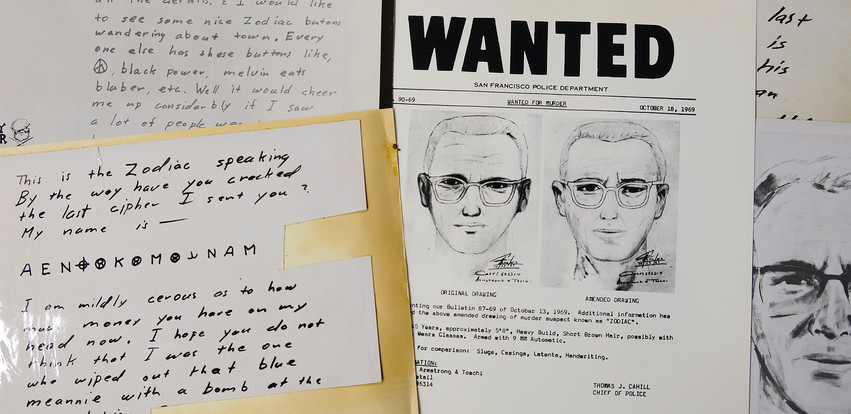 all the details. ? I would like
to see some nice Zodiac butons
wandering about town. Every
one else has these buttons like,
, black power, melvin eats
bluber, etc. Well it would cheer
me up considerbly if I saw
a lot of people
This is the Zodiac speaking
By the way have you cracked
the last cipher I sent you ?
My name is —
A E N ⊕ ⊗ K ⊗ M ⊗ ⅃ N A M
I am mildly cerous as to how
much money you have on my
head now. I hope you do not
think that I was the one
who wiped out that blue
meannie with a bomb at the
WANTED
SAN FRANCISCO POLICE DEPARTMENT
90-69
WANTED FOR MURDER
OCTOBER 18, 1969
ORIGINAL DRAWING
AMENDED DRAWING
nting our Bulletin 87-69 of October 13, 1969. Additional information has
d the above amended drawing of murder suspect known as "ZODIAC".
5 Years, approximately 5'8", Heavy Build, Short Brown Hair, possibly with
Wears Glasses. Armed with 9 MM Automatic.
for comparison: Slugs, Casings, Latents, Handwriting.
ATION:
Armstrong & Toschi
etail
96314
THOMAS J. CAHILL
CHIEF OF POLICE
last
is
his
an